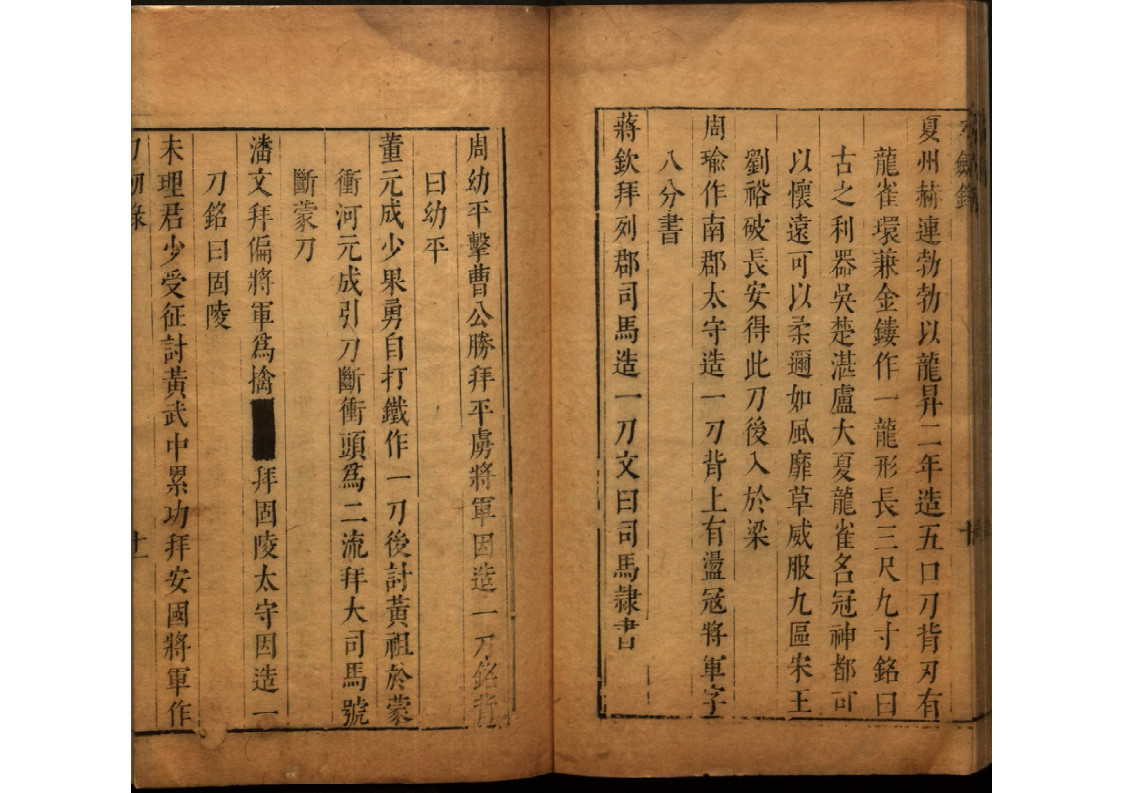 夏州赫連勃勃以龍昇二年造五口刀背刃有
龍雀環兼金鏤作一龍形長三尺九寸銘曰
古之利器吳楚湛盧大夏龍雀名冠神都可
以懷遠可以柔邇如風靡草威服九區宋王
劉裕破長安得此刀後入於梁
周瑜作南郡太守造一刀背上有盪冦將軍字
八分書
蔣欽拜列郡司馬造一刀文曰司馬隷書
周幼平擊曹公勝拜平虜將軍因造一刀銘背
曰幼平
董元成少果勇自打鐵作一刀後討黃祖於蒙
衝河元成引刀斷衝頭爲二流拜大司馬號
斷蒙刀
潘文拜偏將軍爲擒拜固陵太守因造一
刀銘曰固陵
未理君少受征討黃武中累功拜安國將軍作